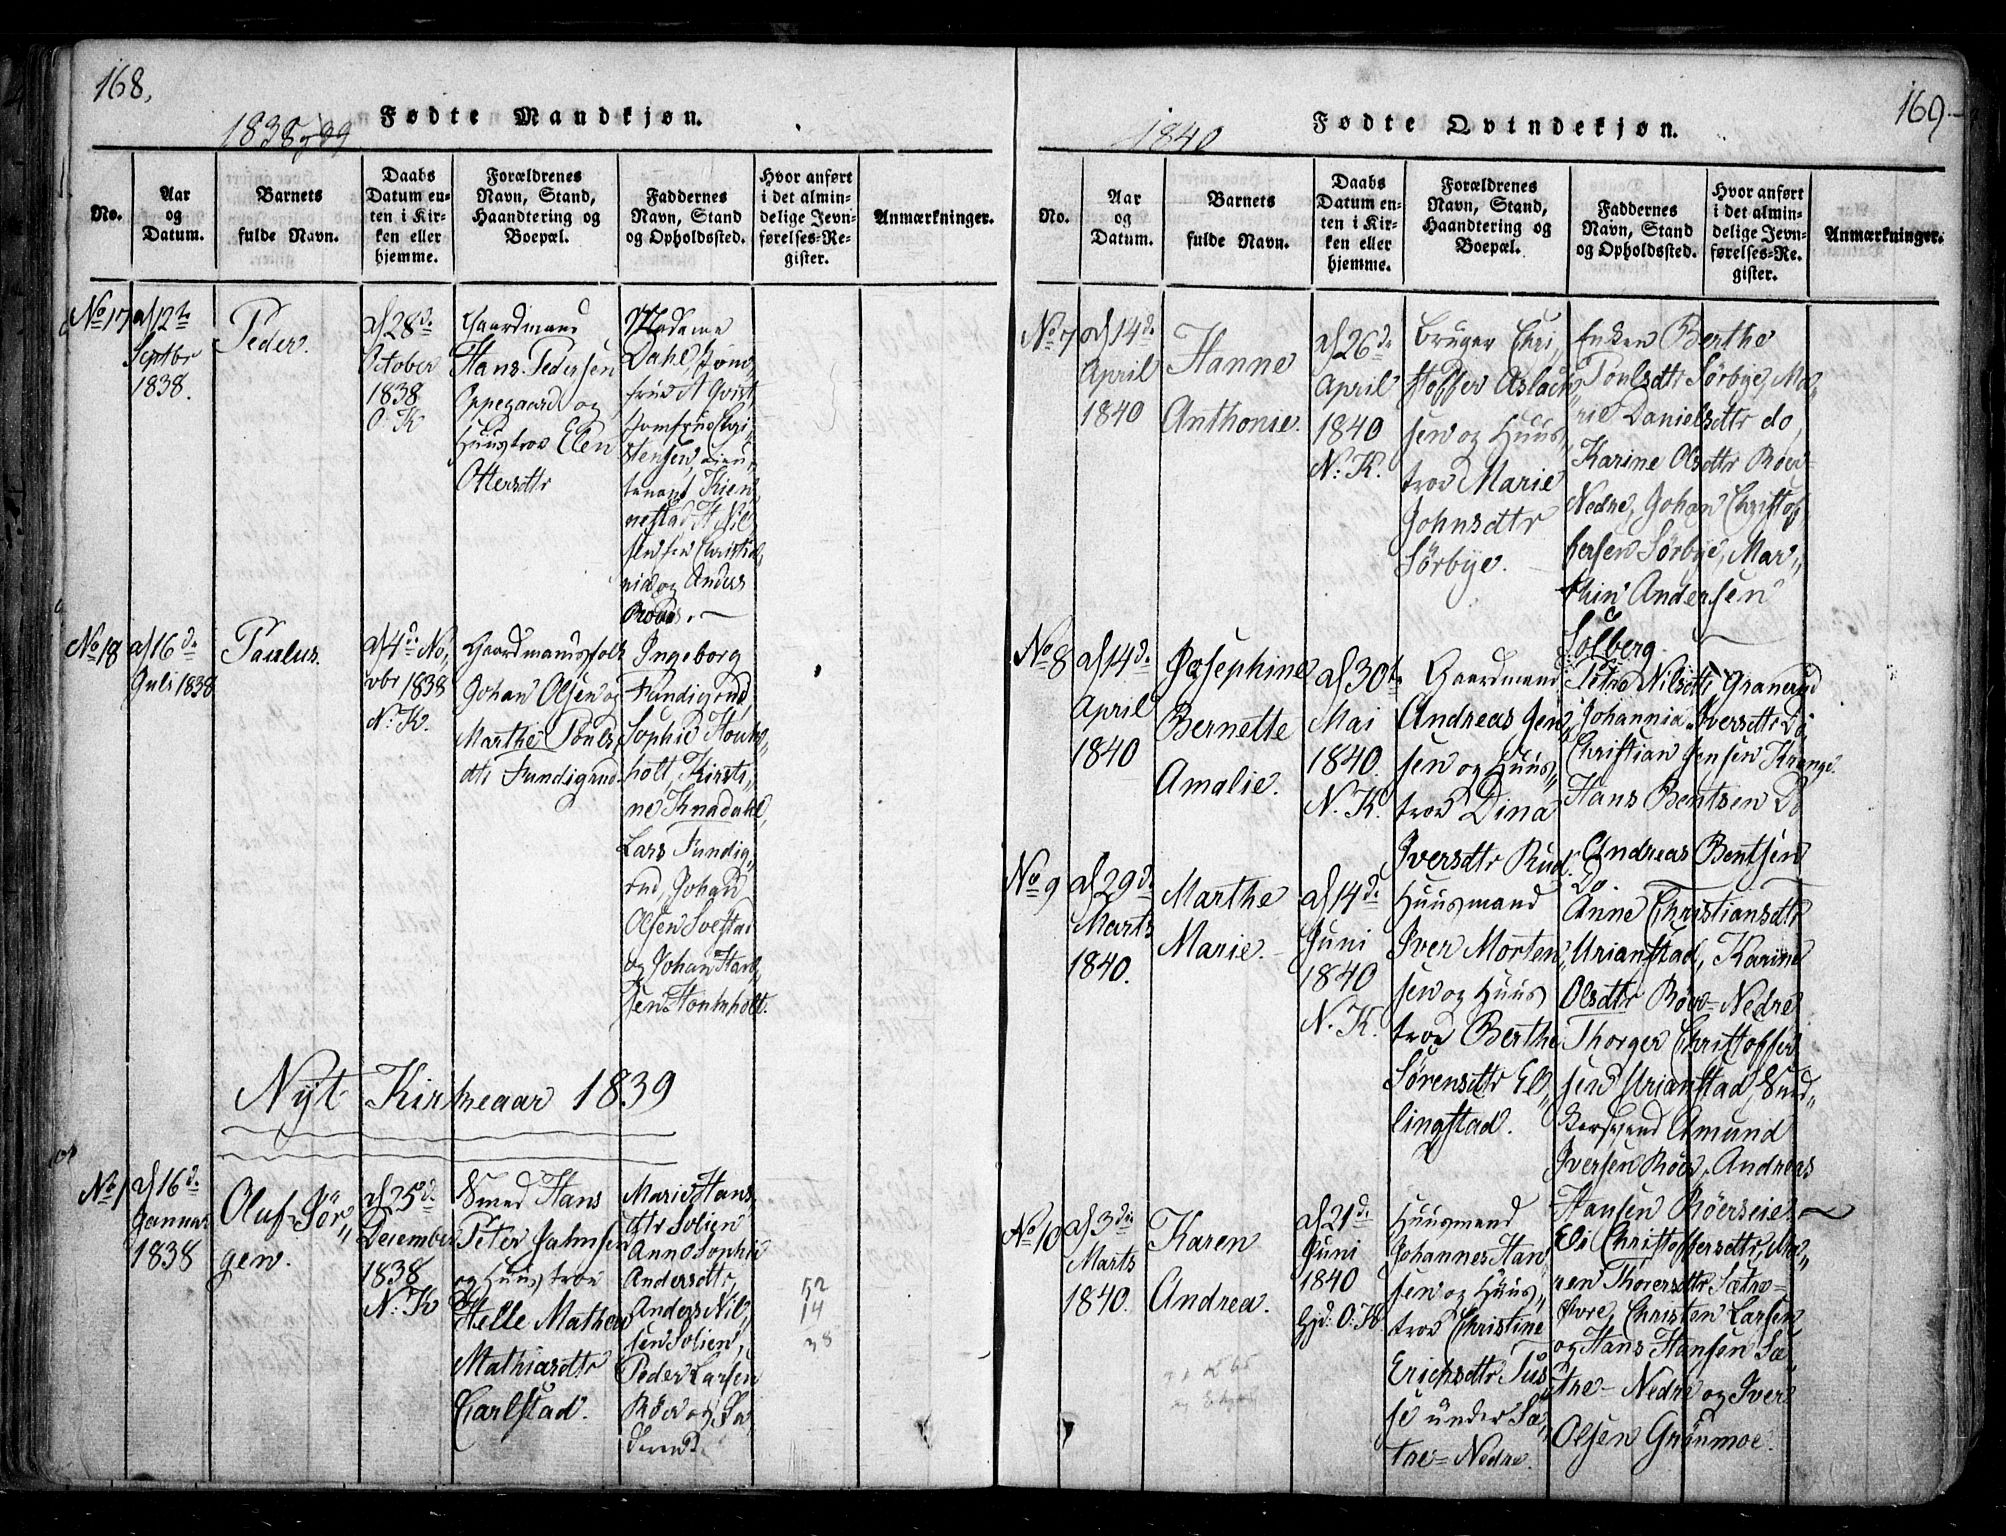 168.
Fødte Mandkjøn.
1838 39
No.
Aar
og
Datum.
Barnets
fulde Navn.
Daabs
Datum en-
ten i Kir-
ken eller
hjemme.
Forældrenes
Navn, Stand,
Haandtering og
Boepæl.
Faddernes
Navn, Stand
og Opholdssted.
Hvor anført
i det almin-
delige Jevn-
førelses-Re-
gister.
Anmærkninger.
No 17
d 12te
Septbr
1838.
Peder.
d 28de
October
1838
O. K
Gaardmand
Hans Pedersen
Oppegaard og
Huustroe Elen
Ottersdtr
Madame
Dahl, Jom-
frue A Qvist
Jomfrue Chri-
stensen, Lieu-
tenant Kien
nestad H Nil
sen Christia
nia og Anders
No 18
d 16de
Juli 1838
Paulus.
d 4de No-
vbr 1838
N. K.
Gaardmandsfolk
Johan Olsen og
Marthe Pouls-
dtr Fundigrud
Ingeborg
Fundigrud,
Sophie Houk-
holt, Kirsti-
ne Knadahl,
Lars Fundig-
rud, Johan
Olsen Svestad
og Johan Han-
sen Honkholt.
Nyt Kirkeaar 1839
No 1
d 16de
Januar
1838
Oluf Sör-
gen.
d 25de
December
1838
N. K
Smed Hans
Peter Jahnsen
og Huustroe
Helle Mathea
Mathiasdtr
Carlstad.
Marie Hans
dtr Solien
Anne Sophie
Andersdtr,
Anders Nil-
sen Solien,
Peder Larsen
Röer og
52
14
38
169
Fødte Qvindekjøn.
1840
No.
Aar
og
Datum.
Barnets
fulde Navn.
Daabs
Datum en-
ten i Kir-
ken eller
hjemme.
Forældrenes
Navn, Stand,
Haandtering og
Boepæl.
Faddernes
Navn, Stand
og Opholdssted.
Hvor anført
i det almin-
delige Jevn-
førelses-Re-
gister.
Anmærkninger.
No 7
d 14de
April
1840
Hanne
Anthonie.
d 26de
April
1840
N. K.
Bruger Chri-
stoffer Aslack-
sen og Huus-
troe Marie
Johnsdtr
Sörbye.
Enken Berthe
Poulsdtr Sörbye, Ma-
rie Danielsdtr do,
Karine Olsdtr Röer
Nedre, Johan Christof
fersen Sörbye, Mar-
thin Andersen
Solberg.
No 8
d 14de
April
1840
Josephine
Bernette
Amalie.
d 30te
Mai
1840.
N. K.
Gaardmand
Andreas Jen-
sen og Huus-
troe Dina
Iversdtr Rud.
Petra Nilsdtr Granerud
Johannia Iversdtr Do,
Christian Jensen Krange.
Hans Bentsen Do
Andreas Bentsen
Do.
No 9
d 29de
Marts
1840.
Marthe
Marie.
d 14de
Juni
1840
N. K.
Huusmand
Iver Morten-
sen og Huus
troe Berthe
Sörensdtr El-
lingstad.
Anne Christiansdtr
Urianstad, Karine
Olsdtr Röer Nedre
Thorger Christoffer
sen Urianstad, Snid-
kersvend Amund
Iversen Röer, Andreas
Hansen Röerseie.
No 10
d 3die
Marts
1840.
Karen
Andrea.
d 21de
Juni
1840
Hjd. O. K
Huusmand
Johannes Han
sen og Huus-
troe Christine
Erichsdtr Tus
se under Sæ-
tre Nedre.
Eli Christoffersdtr, Ma-
ren Thorersdtr Sætre
övre, Christen Larsen
og Hans Hansen Sæ
tre Nedre og Iver
Olsen Grönmoe.